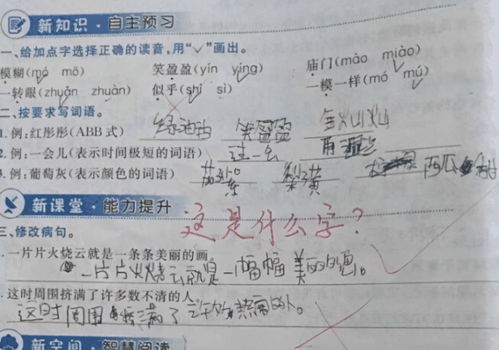 新知识·自主预习
一、给加点字选择正确的读音,用“✓”画出。
模糊(mó mō) 笑盈盈(yín yíng) 庙门(mào miào)
一转眼(zhuǎn zhuàn) 似乎(shì sì) 一模一样(mó mú)
二、按要求写词语。
1. 例:红彤彤(ABB式) 绿油油 笑盈盈 金灿灿
2. 例:一会儿(表示时间极短的词语)
3. 例:葡萄灰(表示颜色的词语) 茄子紫 梨黄
新课堂·能力提升
这是什么字?
三、修改病句。
一片片火烧云就是一条条美丽的画
一片片火烧云就是一幅幅美丽的画。
这时周围挤满了许多数不清的人。
这时周围挤满了
新空间·智慧阅读